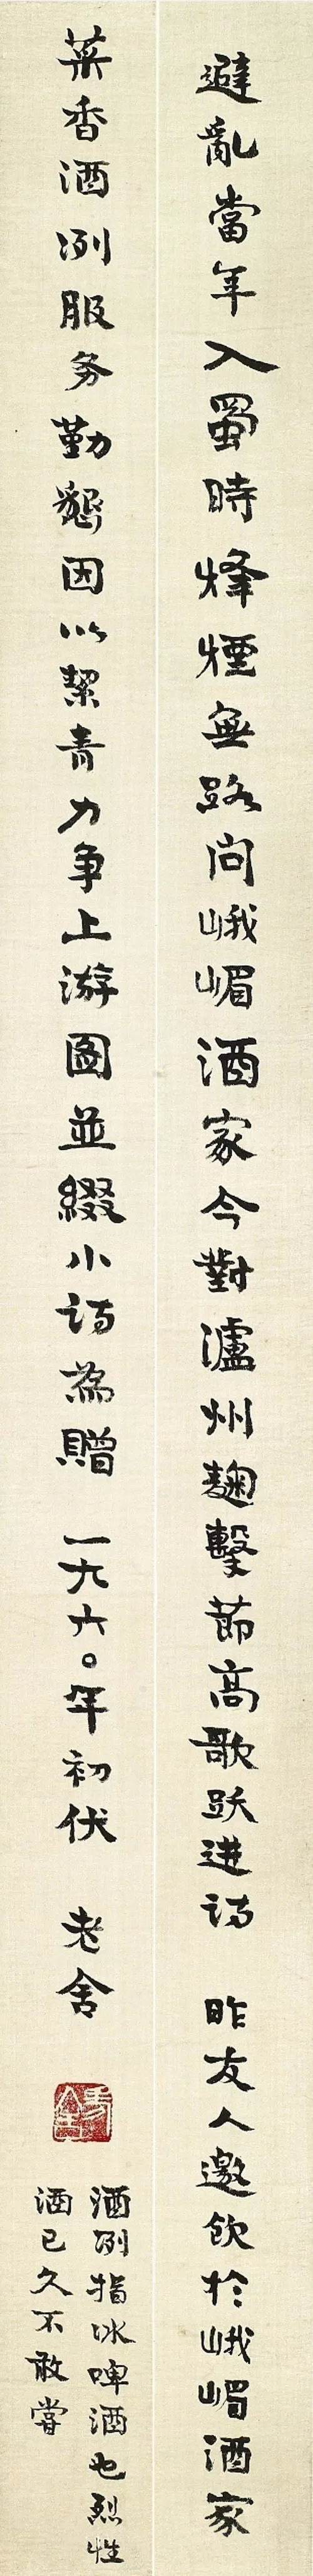 避亂當年入蜀時烽煙無路問峨嵋酒家今對瀘州麴擊節高歌跃进诗 昨友人邀飲於峨嵋酒家
菜香酒冽服务勤懇因以絜青力争上游圖並綴小诗為贈 一九六〇年初伏 老舍
舍予
酒冽指冰啤酒也烈性
酒已久不敢嘗